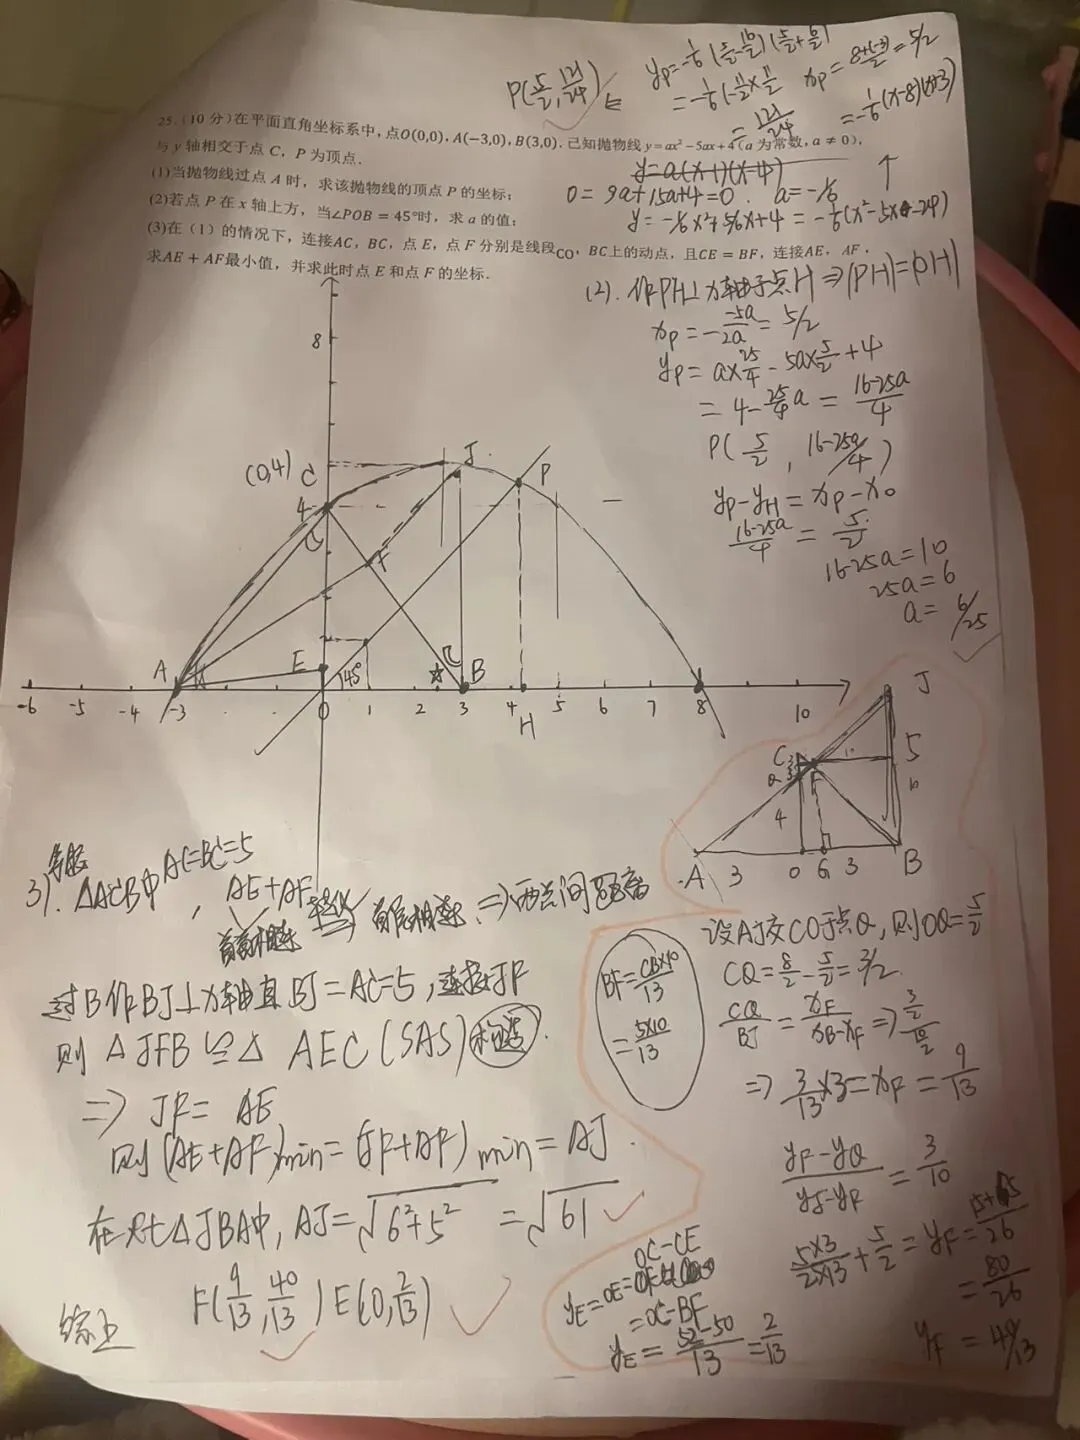 P(5/2, 121/24)
y_P=-1/6(5/2-16/2)(5/2+6/2)
=-1/6(-11/2×11/2
=121/24
x_P=8+(-3)/2=5/2
=-1/6(x-8)(x+3)
25.(10 分)在平面直角坐标系中,点O(0,0),A(−3,0),B(3,0).已知抛物线 y=ax²−5ax+4(a 为常数,a ≠ 0),
与 y 轴相交于点 C,P 为顶点.
(1)当抛物线过点 A 时,求该抛物线的顶点 P 的坐标;
(2)若点 P 在 x 轴上方,当∠POB = 45°时,求 a 的值;
(3)在(1)的情况下,连接AC,BC,点 E,点 F 分别是线段CO,BC上的动点,且CE = BF,连接AE,AF,
求AE + AF最小值,并求此时点 E 和点 F 的坐标.
y=a(x-1)(x-4)
0=9a+15a+4=0. a=-1/6
y=-1/6x²+5/6x+4=-1/6(x²-5x-24)
(2).作PH⊥x轴于点H⇒|PH|=|OH|
x_P=-(-5a)/2a=5/2
y_P=a×25/4-5a×5/2+4
=4-25/4a=(16-25a)/4
P(5/2, (16-25a)/4)
y_P-y_H=x_P-x_O
(16-25a)/4=5/2
16-25a=10
25a=6
a=6/25
8
(0,4) C
4
J
P
F
A
E
45°
B
-6 -5 -4 -3 0 1 2 3 4 5 6 7 8 10
H
J
C
Q
F
5
4
A 3 O G 3 B
3).
等腰
△ACB中AC=BC=5
, AE+AF
首首相连
转化
首尾相连.⇒两点间距离
过B作BJ⊥x轴且BJ=AC=5,连接JF
则△JFB≌△AEC(SAS)
⇒JF=AE
则(AE+AF)min=(JF+AF)min=AJ.
在Rt△JBA中,AJ=√(6²+5²)=√61
综上
F(9/13,40/13) E(0,2/13)
BF=CB×10/13
=5×10/13
设AJ交CO于点Q,则OQ=5/2
CQ=8/2-5/2=3/2.
CQ/BJ=x_F/(x_B-x_F)⇒(3/2)/(10/2)
⇒3/13×3=x_F=9/13
(y_F-y_Q)/(y_J-y_F)=3/10
5×3/2×13+5/2=y_F=15+65/26
=80/26
y_F=40/13
OC-CE
y_E=OE=
=OC-BF
y_E=(52-50)/13=2/13